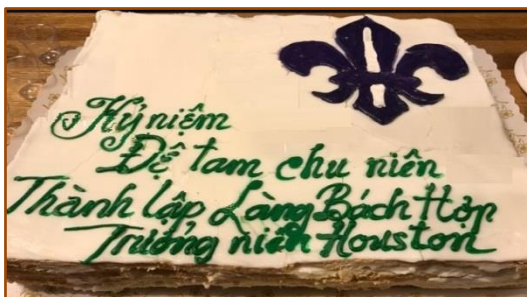 Kỷ niệm
Đệ tam chu niên
Thành lập Làng Bách Hợp
Trưởng niên Houston